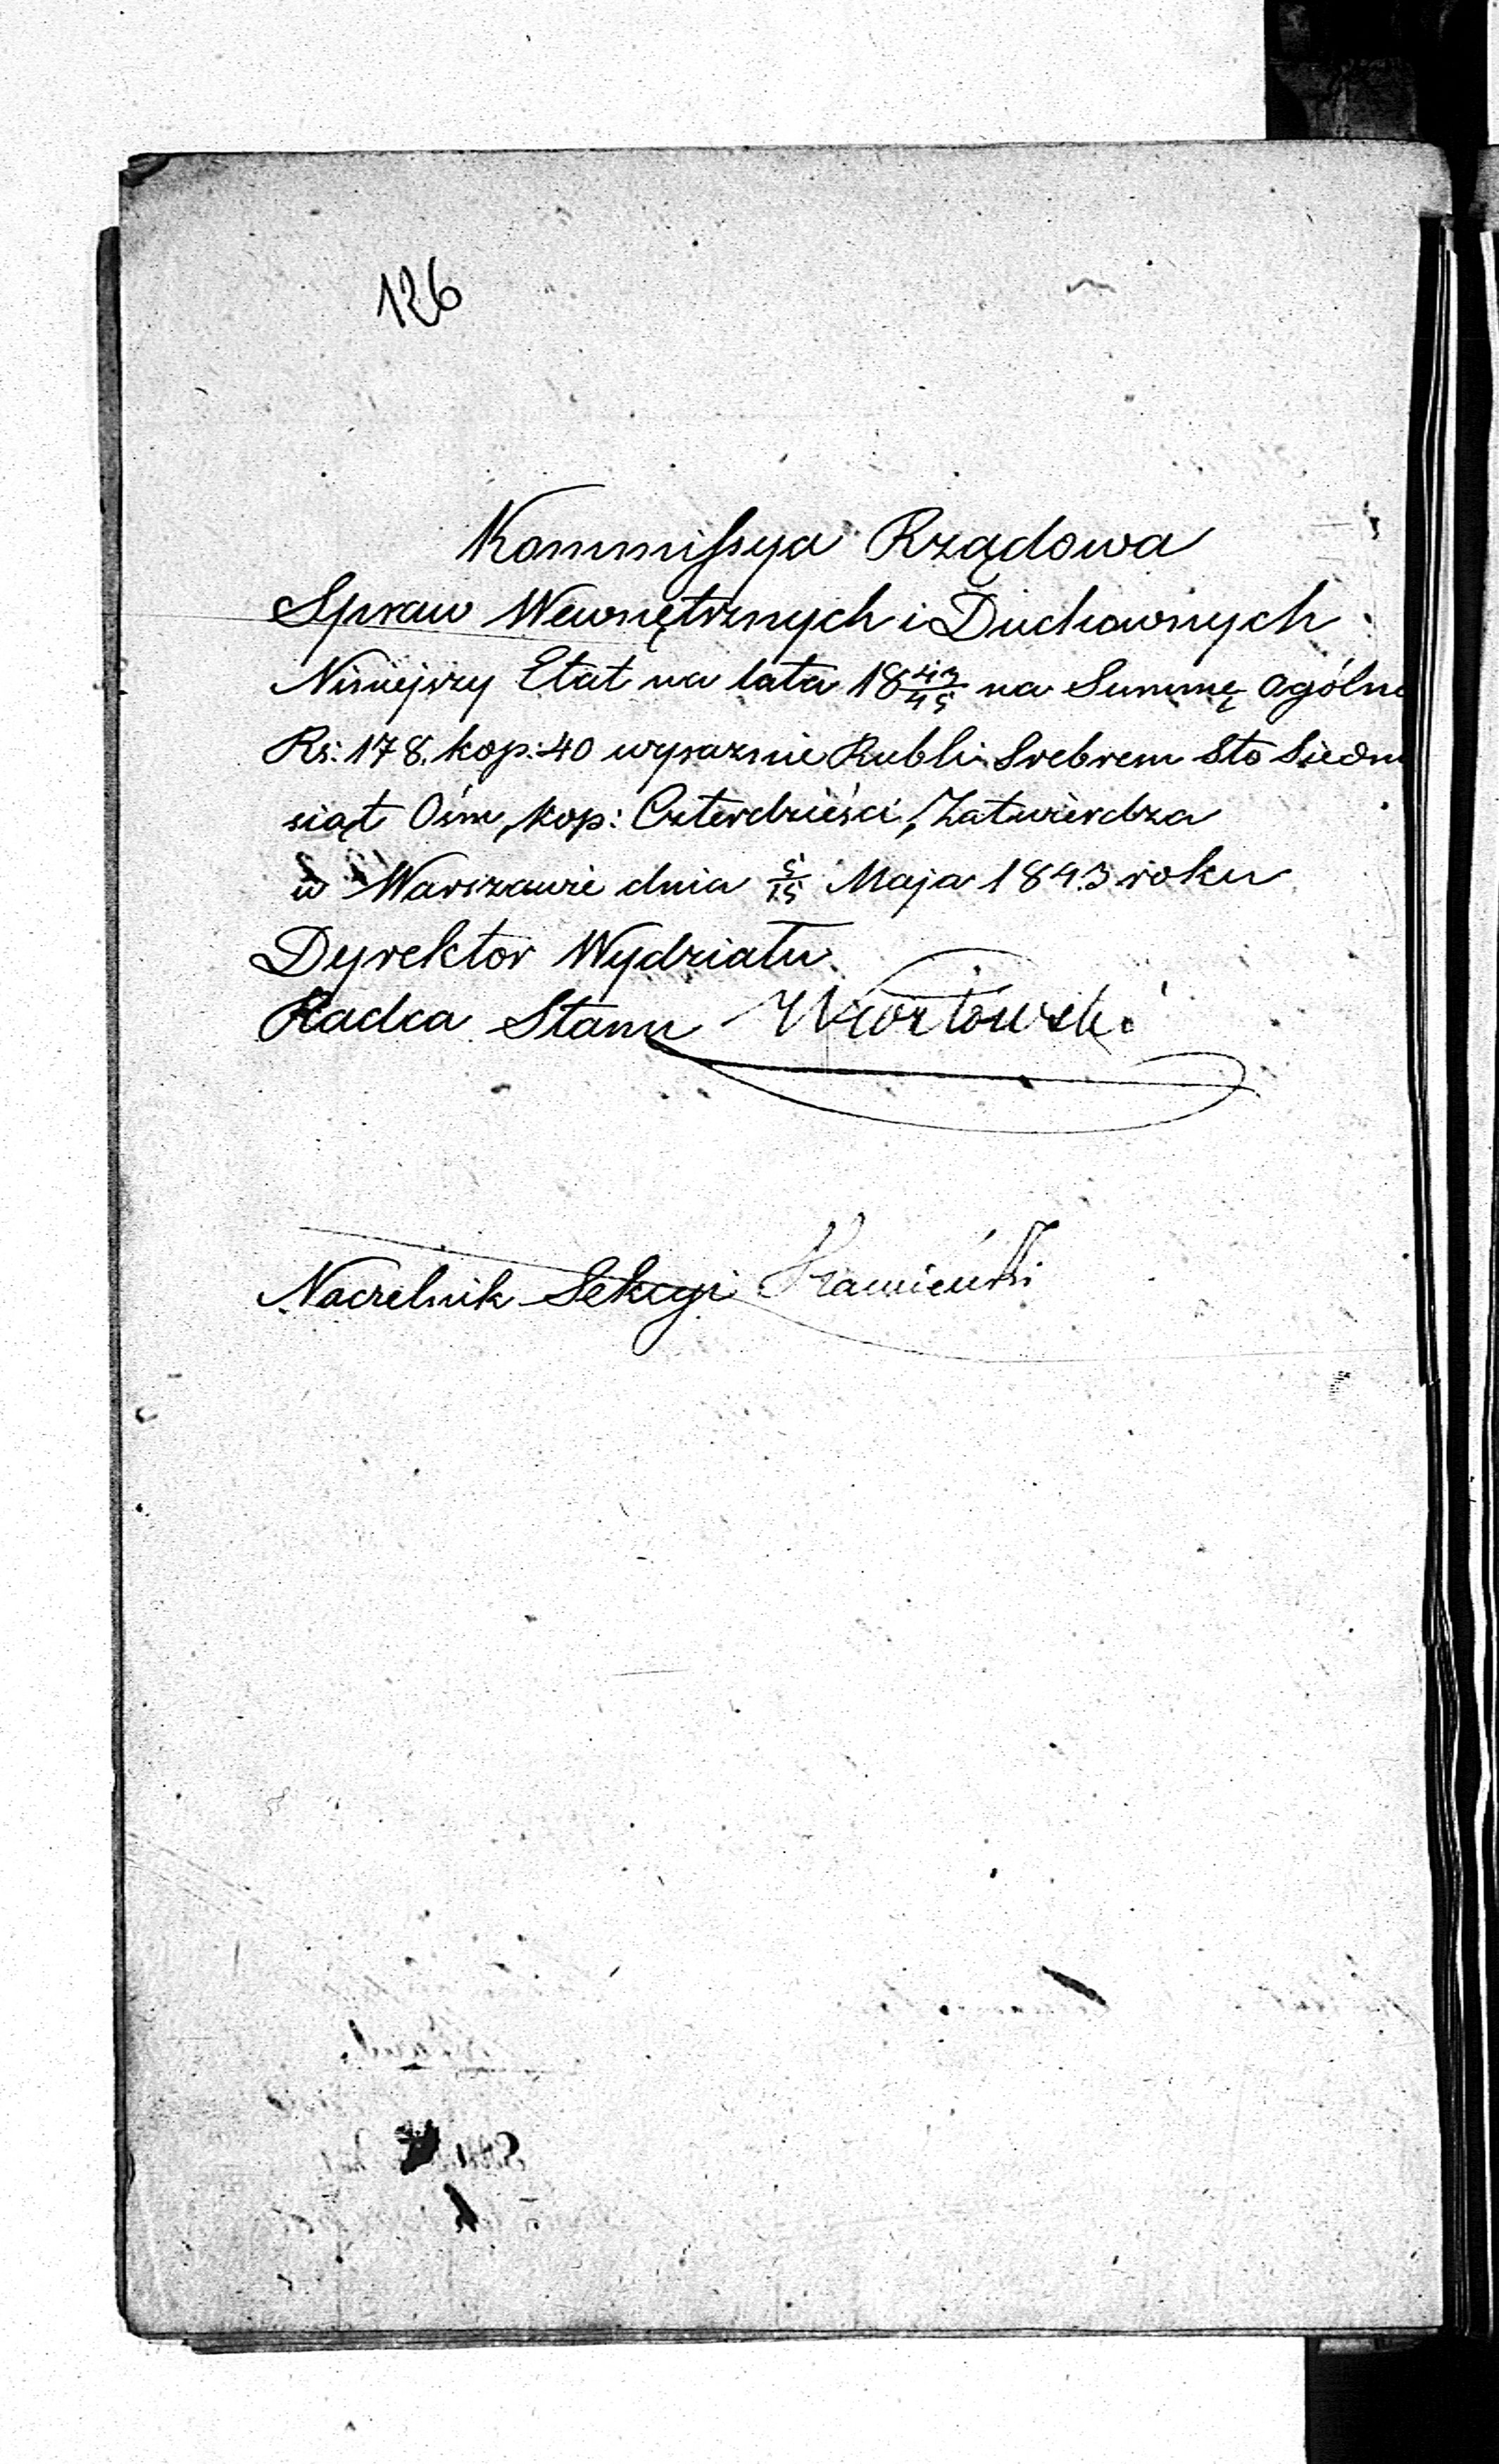 126
Kommissya Rządowa
Spraw Wewnętrznych i Duchownych
Niniejszy Etat na lata 18 43/45 na Summę ogóln
Rs: 178. kop: 40 wyraznie Rubli Srebrem Sto Siedm
siąt Ośm, kop: Czterdzieści, Zatwierdza
w Warszawie dnia 3/15 Maja 1843 roku
Dyrektor Wydziału
Radca Stanu
Naczelnik Sekcyi Kamieński